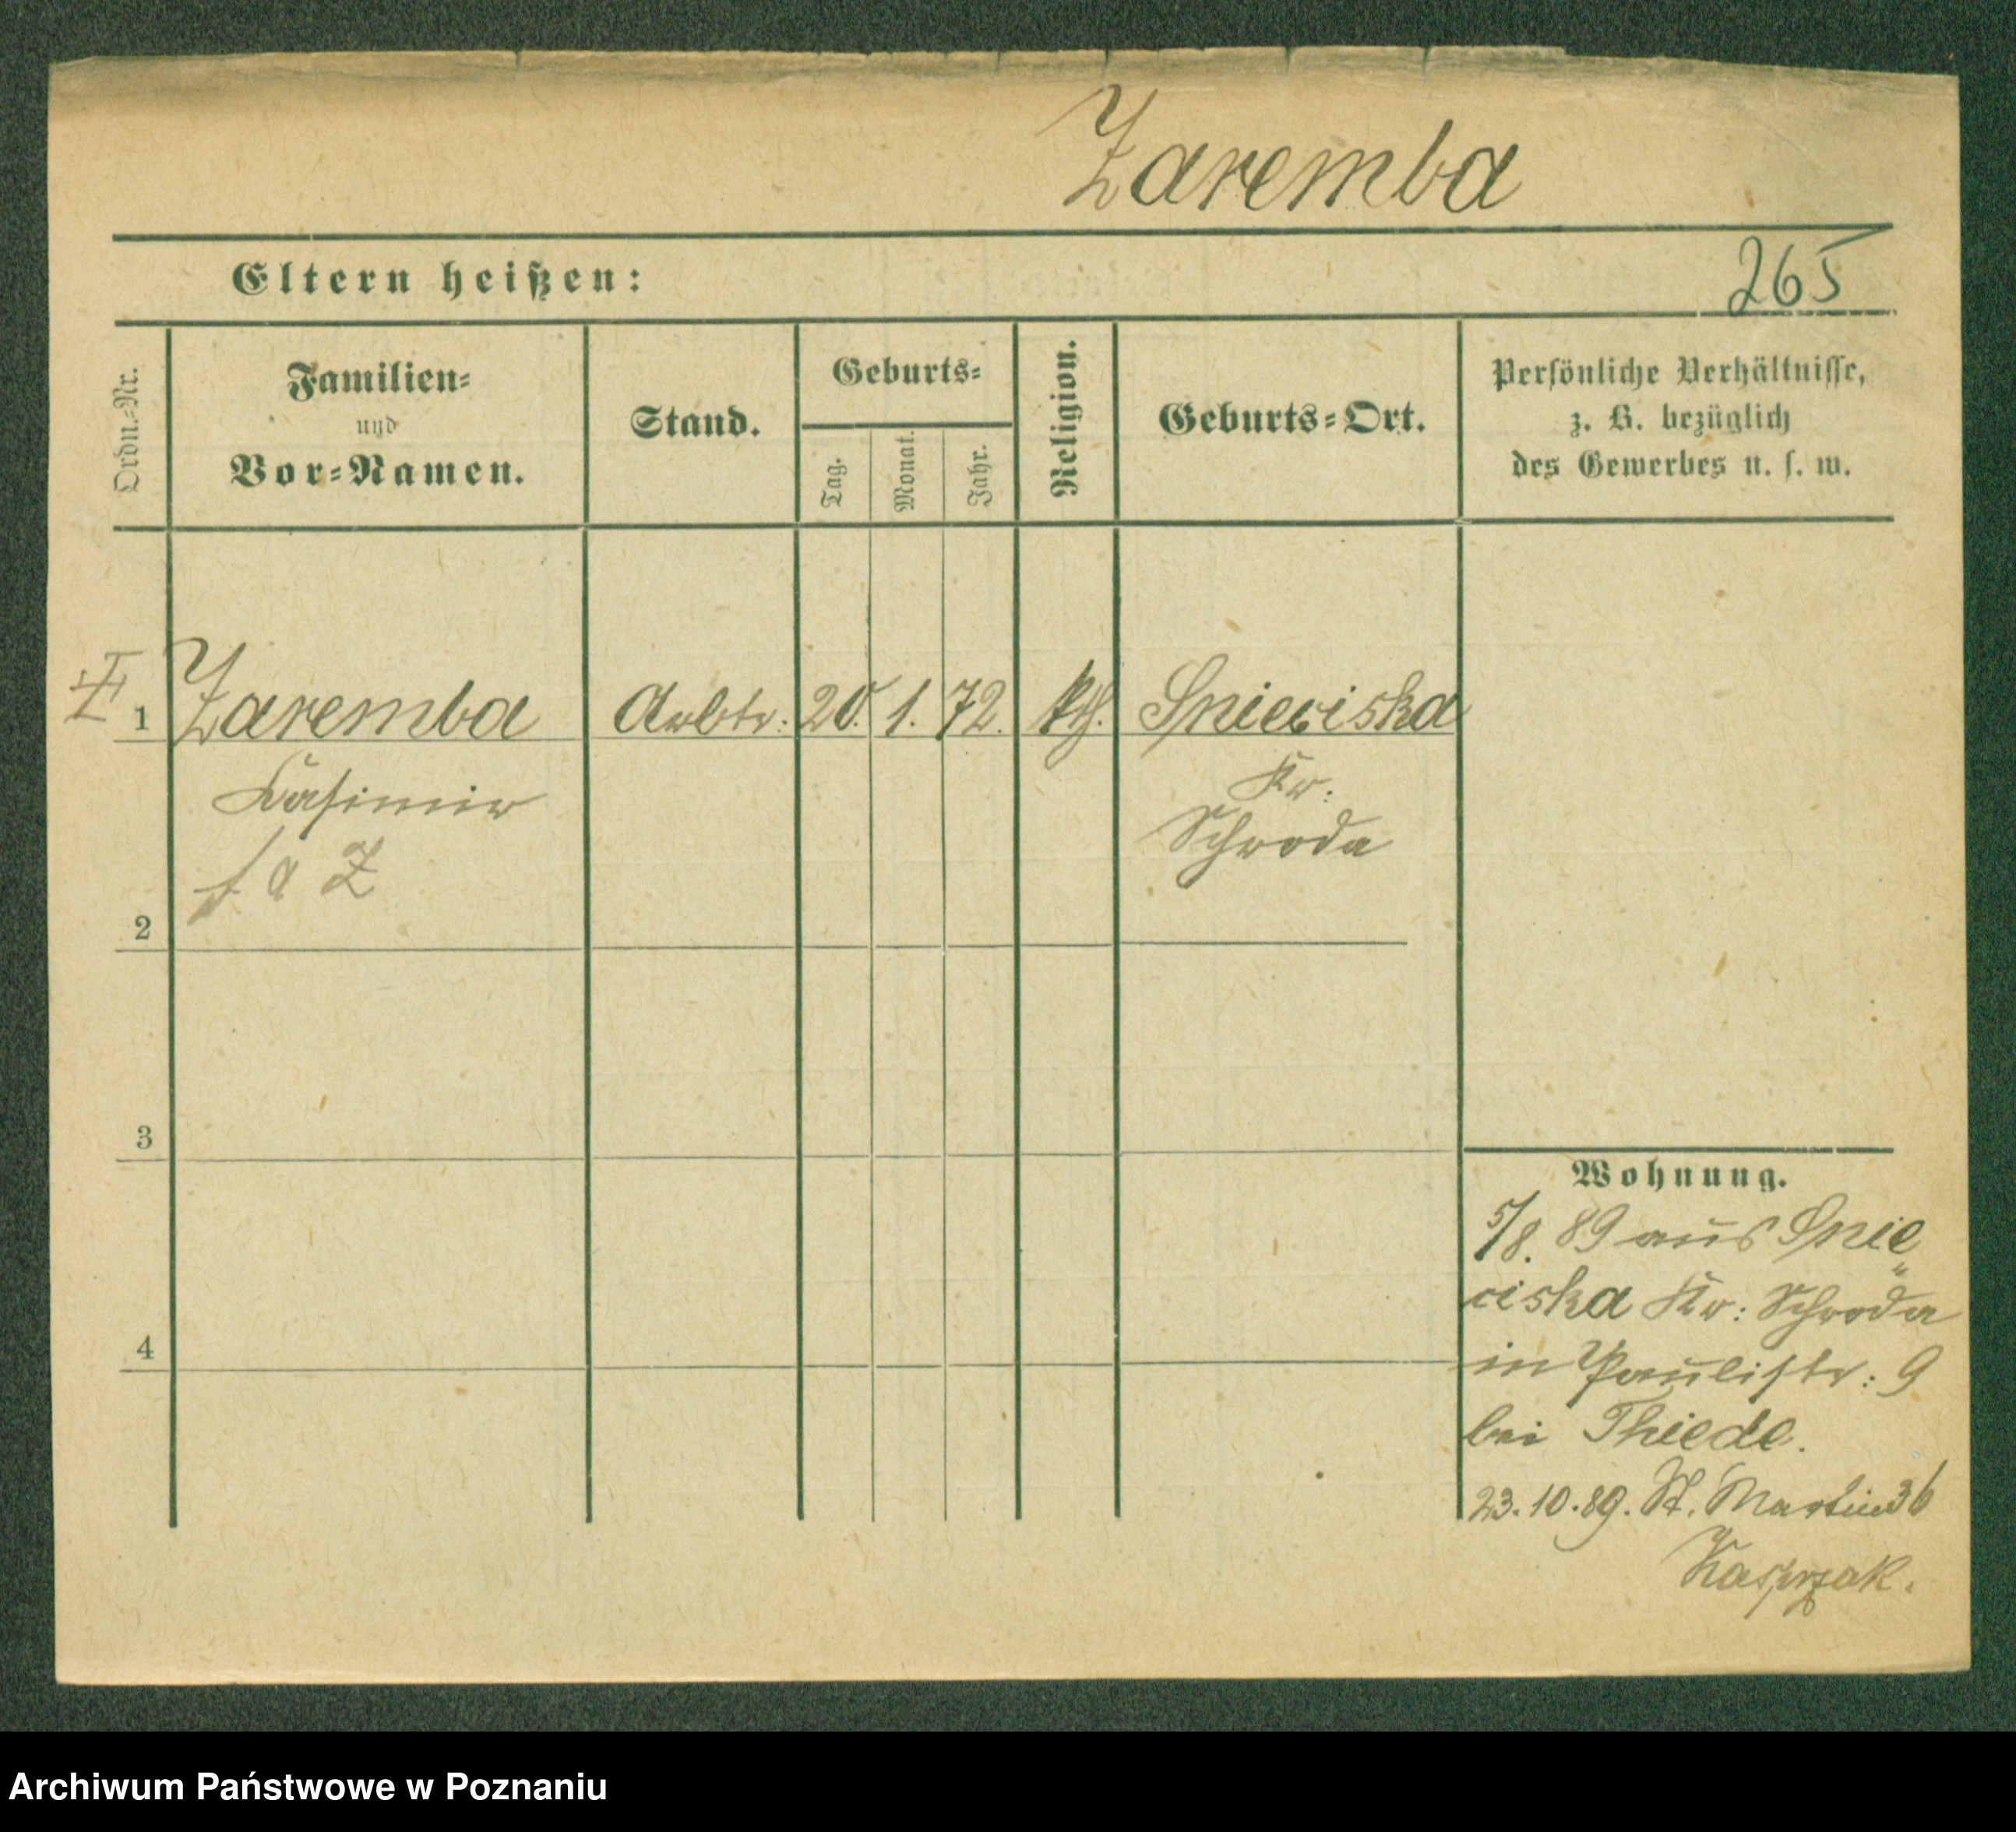 Zaremba
Eltern heißen:
265
Ordn.-Nr.
Familien-
und
Vor-Namen.
Stand.
Geburts-
Tag.
Monat.
Jahr.
Religion.
Geburts-Ort.
Persönliche Verhältnisse,
z. B. bezüglich
des Gewerbes u. s. w.
1 Zaremba Arbtr. 20. 1. 72. kth. Snieciska
Casimir
Kr:
Schroda
f a Z
2
3
4
Wohnung.
5/8. 89 aus Snie
ciska Kr: Schroda
in Paulistr: 9
bei Thiede.
23.10.89. St. Martin 36
Kasprzak.
Archiwum Państwowe w Poznaniu